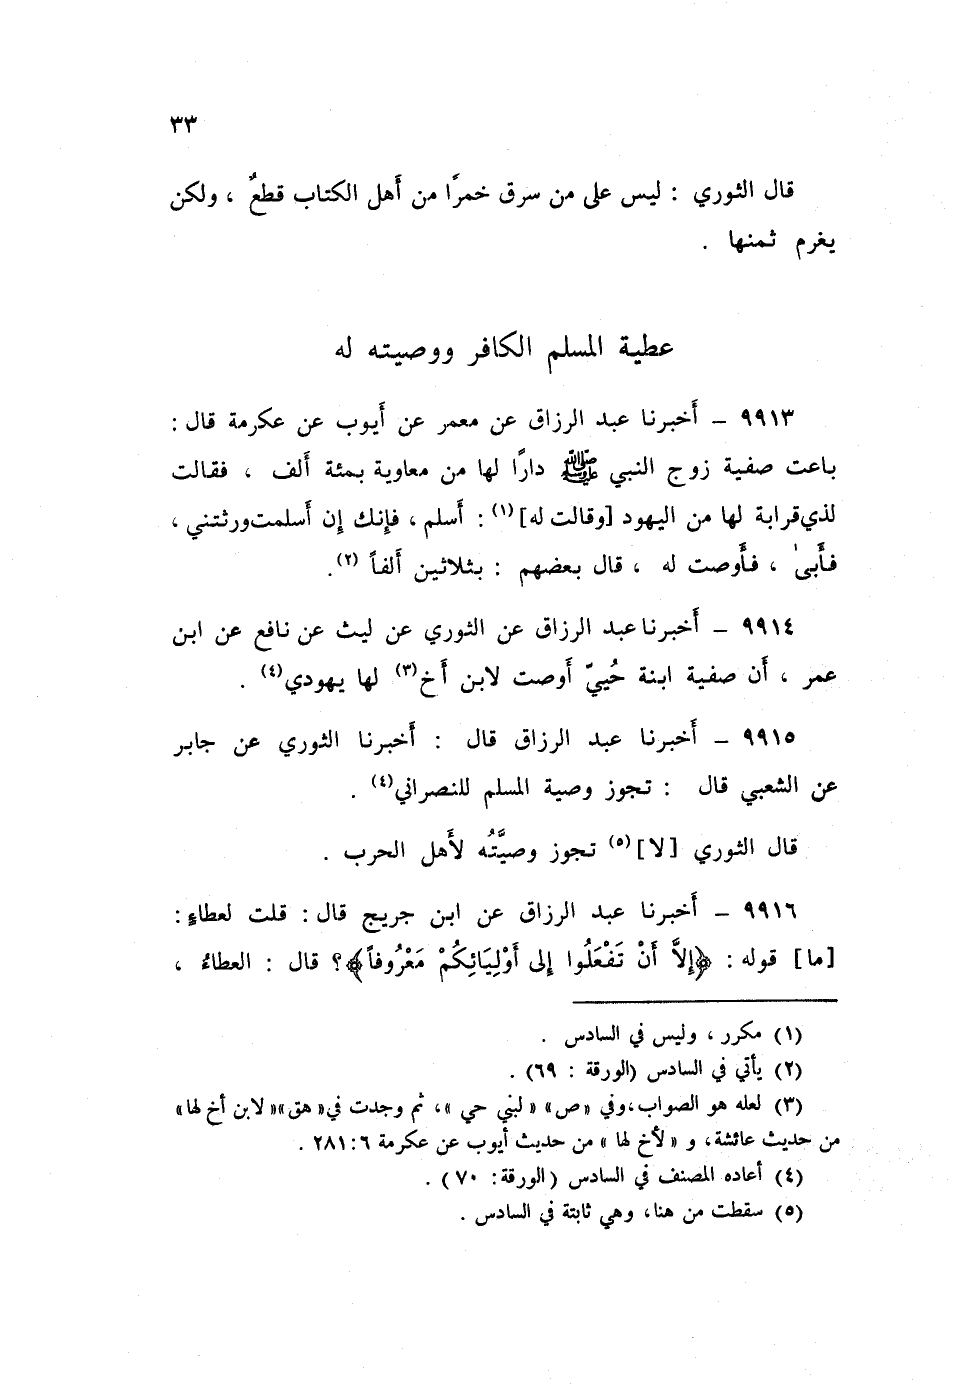 ٣٣
قال الثوري : ليس على من سرق خمرًا من أَهل الكتاب قطعٌ ، ولكن
يغرم ثمنها .
عطية المسلم الكافر ووصيته له
٩٩١٣ – أَخبرنا عبد الرزاق عن معمر عن أَيوب عن عكرمة قال :
باعت صفية زوج النبي ﷺ دارًا لها من معاوية بمئة أَلف ، فقالت
لذي قرابة لها من اليهود [وقالت له] (١) : أَسلم ، فإنك إن أَسلمت ورثتني ،
فأَبىٰ ، فأَوصت له ، قال بعضهم : بثلاثين أَلفاً (٢).
٩٩١٤ – أَخبرنا عبد الرزاق عن الثوري عن ليث عن نافع عن ابن
عمر ، أَن صفية ابنة حُييّ أَوصت لابن أَخ (٣) لها يهودي (٤) .
٩٩١٥ – أَخبرنا عبد الرزاق قال : أَخبرنا الثوري عن جابر
عن الشعبي قال : تجوز وصية المسلم للنصراني (٤) .
قال الثوري [لا] (٥) تجوز وصيَّتُه لأَهل الحرب .
٩٩١٦ – أَخبرنا عبد الرزاق عن ابن جريج قال : قلت لعطاءٍ :
[ما] قوله : ﴿إِلاَّ أَنْ تَفْعَلُوا إلى أَوْلِيَائِكُمْ مَعْرُوفاً﴾؟ قال : العطاءُ ،
(١) مكرر ، وليس في السادس .
(٢) يأتي في السادس (الورقة : ٦٩) .
(٣) لعله هو الصواب، وفي «ص» « لبني حي »، ثم وجدت في« هق»« لابن أخ لها»
من حديث عائشة، و « لأخ لها » من حديث أيوب عن عكرمة ٢٨١:٦ .
(٤) أعاده المصنف في السادس (الورقة: ٧٠) .
(٥) سقطت من هنا، وهي ثابتة في السادس .